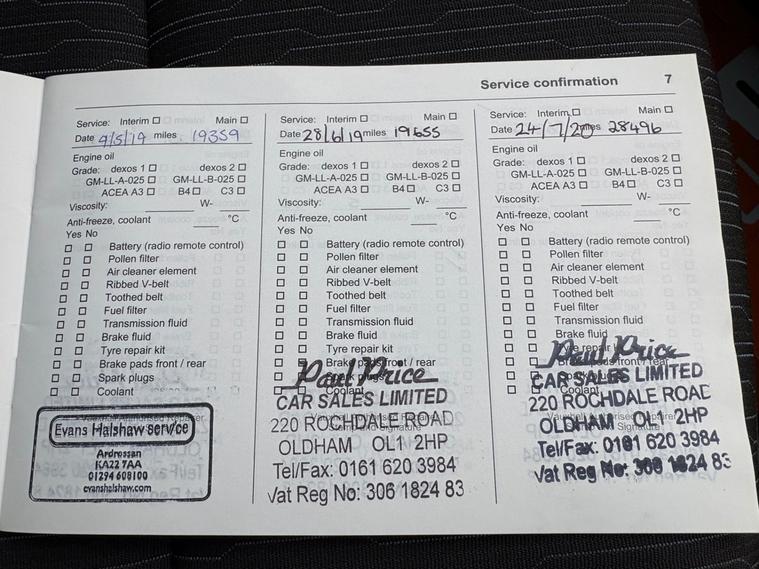 Service confirmation 7
Service: Interim Main
Date 4/5/19 miles 19359
Engine oil
Grade: dexos 1 dexos 2
GM-LL-A-025 GM-LL-B-025
ACEA A3 B4 C3
Viscosity: W-
Anti-freeze, coolant °C
Yes No
Battery (radio remote control)
Pollen filter
Air cleaner element
Ribbed V-belt
Toothed belt
Fuel filter
Transmission fluid
Brake fluid
Tyre repair kit
Brake pads front / rear
Spark plugs
Coolant
Evans Halshaw service
Ardrossan
KA22 7AA
01294 608100
evanshalshaw.com
Service: Interim Main
Date 28/6/19 miles 19655
Engine oil
Grade: dexos 1 dexos 2
GM-LL-A-025 GM-LL-B-025
ACEA A3 B4 C3
Viscosity: W-
Anti-freeze, coolant °C
Yes No
Battery (radio remote control)
Pollen filter
Air cleaner element
Ribbed V-belt
Toothed belt
Fuel filter
Transmission fluid
Brake fluid
Tyre repair kit
Brake pads front / rear
Coolant
Paul Price
CAR SALES LIMITED
220 ROCHDALE ROAD
OLDHAM OL1 2HP
Tel/Fax: 0161 620 3984
Vat Reg No: 306 1824 83
Service: Interim Main
Date 24/7/20 miles 28496
Engine oil
Grade: dexos 1 dexos 2
GM-LL-A-025 GM-LL-B-025
ACEA A3 B4 C3
Viscosity: W-
Anti-freeze, coolant °C
Yes No
Battery (radio remote control)
Pollen filter
Air cleaner element
Ribbed V-belt
Toothed belt
Fuel filter
Transmission fluid
Brake fluid
Paul Price
CAR SALES LIMITED
220 ROCHDALE ROAD
OLDHAM OL1 2HP
Signature
Tel/Fax: 0161 620 3984
Vat Reg No: 306 1824 83